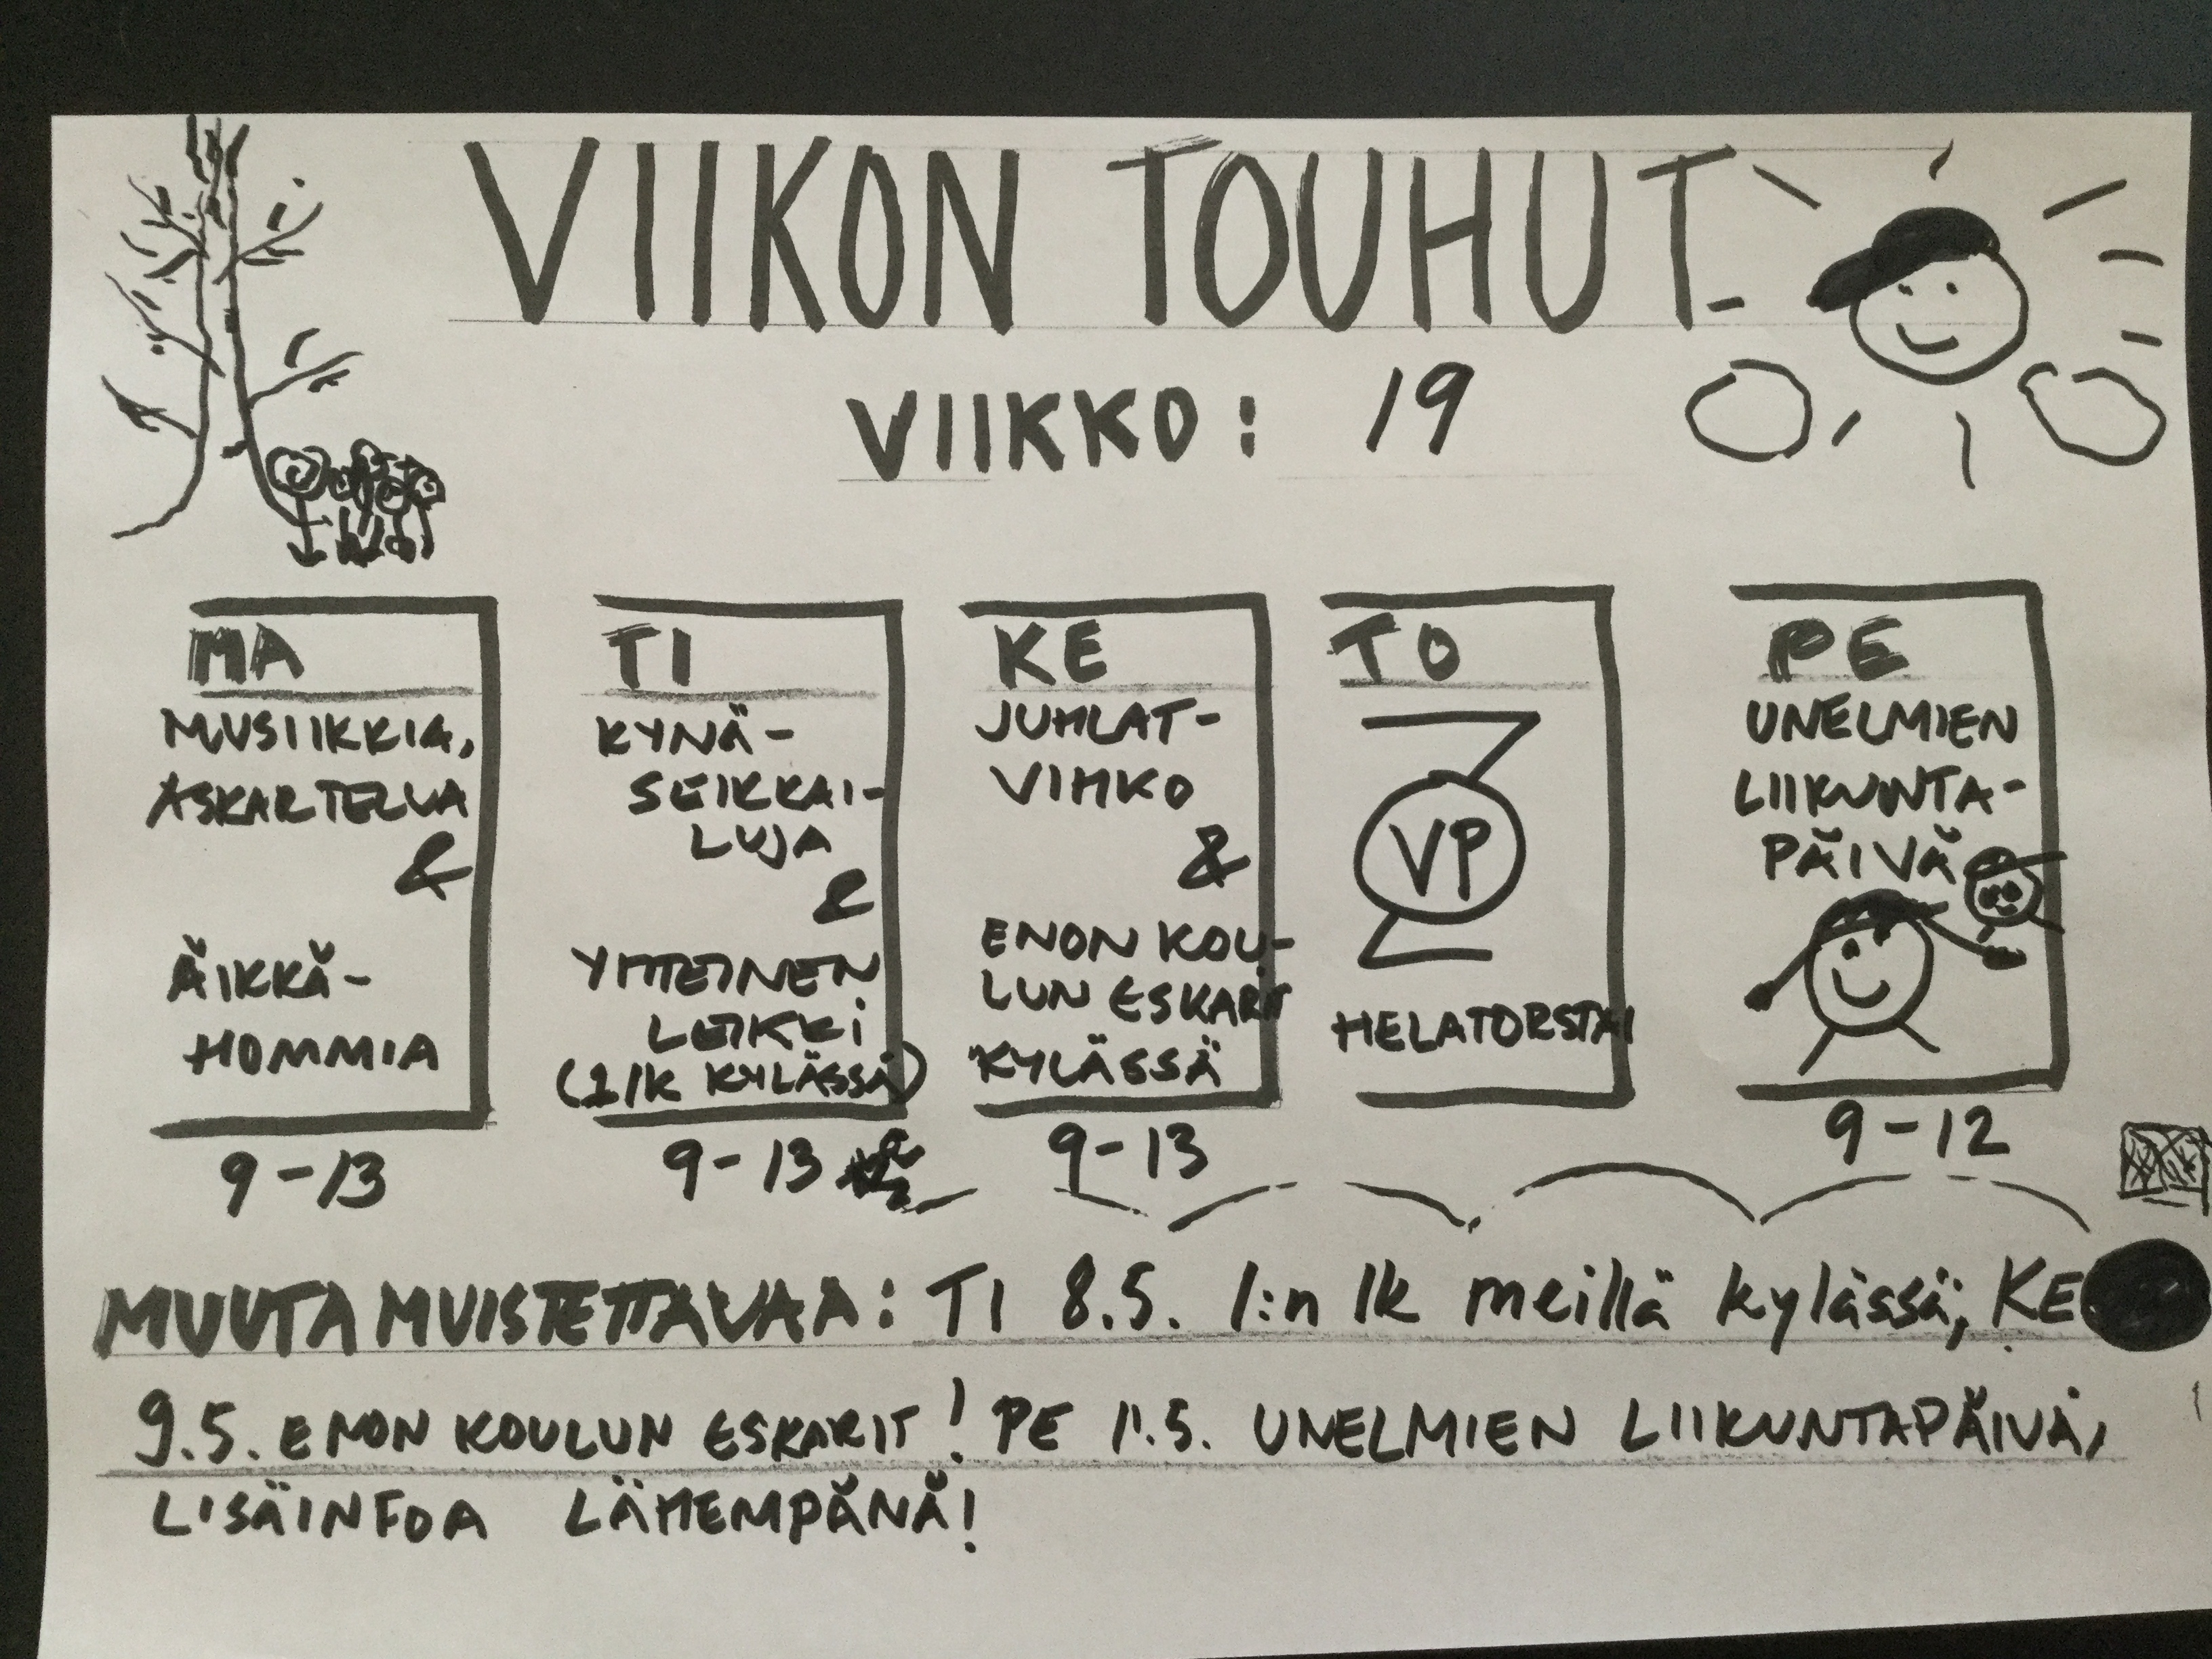 VIIKON TOUHUT
VIIKKO: 19
MA
MUSIIKKIA,
ASKARTELUA
&
ÄIKKÄ-
HOMMIA
9-13
TI
KYNÄ-
SEIKKAI-
LUJA
&
YHTEINEN
LEIKKI
(1 lk KYLÄSSÄ)
9-13
KE
JUHLAT-
VIHKO
&
ENON KOU-
LUN ESKARIT
KYLÄSSÄ
9-13
TO
VP
HELATORSTAI
PE
UNELMIEN
LIIKUNTA-
PÄIVÄ
9-12
MUUTA MUISTETTAVAA: TI 8.5. 1:n lk meillä kylässä, KE
9.5. ENON KOULUN ESKARIT! PE 11.5. UNELMIEN LIIKUNTAPÄIVÄ,
LISÄINFOA LÄHEMPÄNÄ!